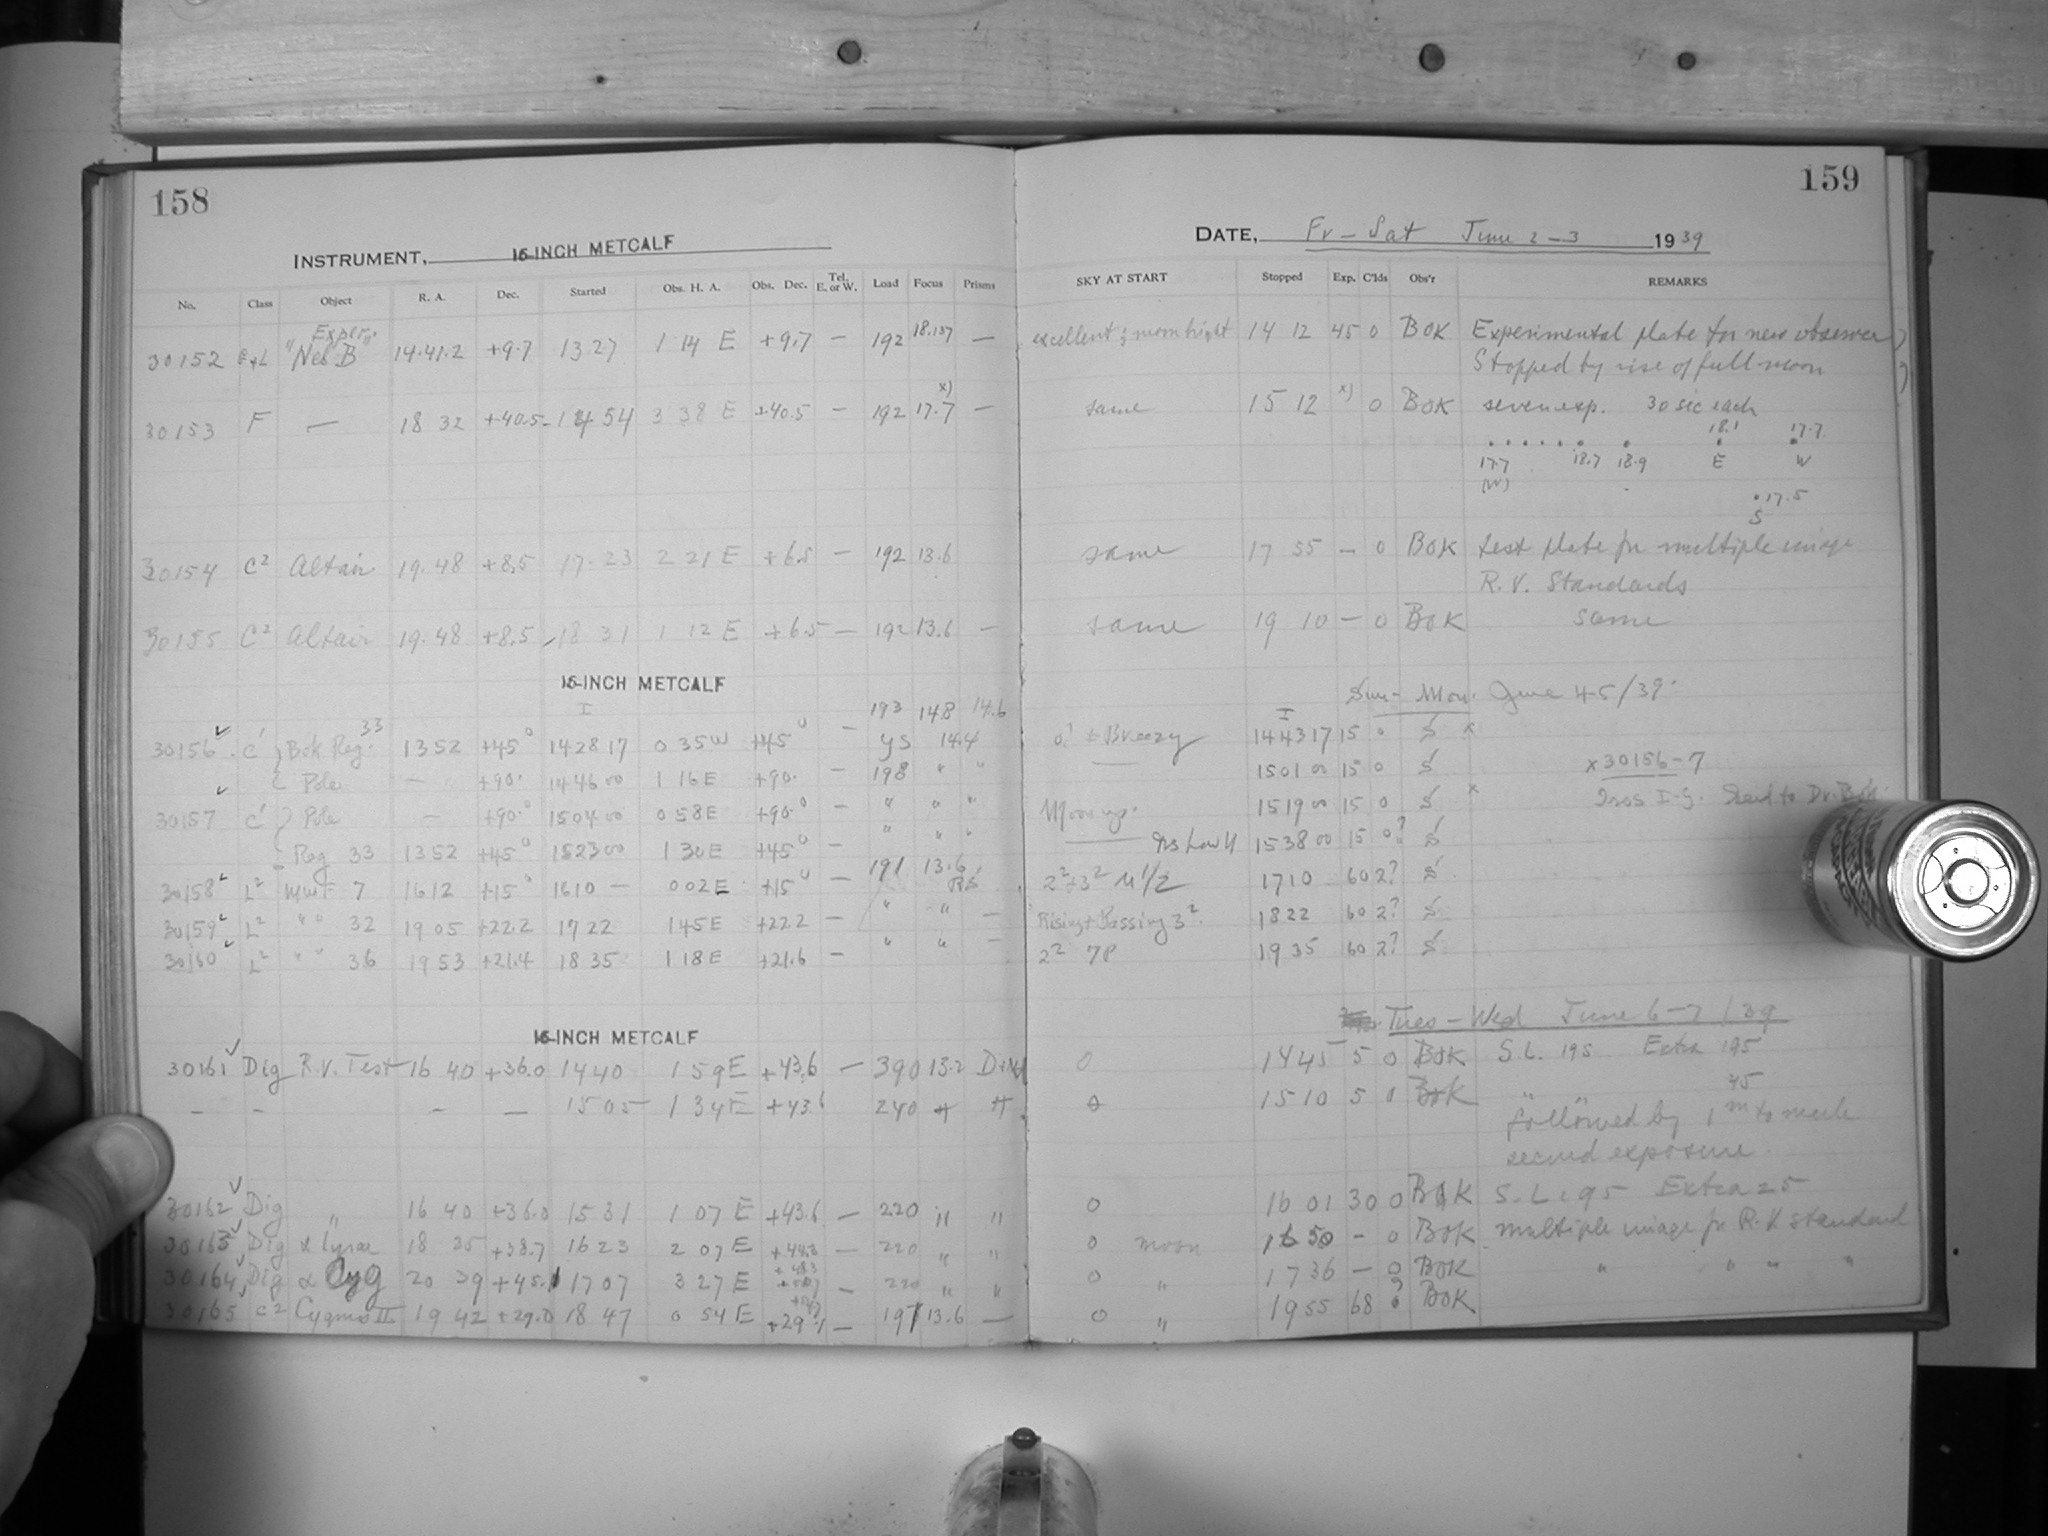 158
159
INSTRUMENT, 16-INCH METCALF
DATE, Fr - Sat June 2-3 1939
No. Class Object R. A. Dec. Started Obs. H. A. Obs. Dec. Tel. E. or W. Load Focus Prisms SKY AT START Stopped Exp. C'lds Obs'r REMARKS
Exper.
30152 "Neb B" 14.41.2 +9.7 13 27 1 14 E +9.7 - 192 18.137 - excellent; moon bright 14 12 45 0 BOK Experimental plate for new observer
Stopped by rise of full moon
x)
30153 F - 18 32 +40.5 14 54 3 38 E +40.5 - 192 17.7 - same 15 12 x) 0 BOK seven exp. 30 sec each
18.1 17.7
17.7 18.7 18.9 E W
(W)
17.5
S
30154 C2 Altair 19.48 +8.5 17.23 2 21 E +6.5 - 192 13.6 same 17 55 - 0 BOK test plate for multiple image
R.V. Standards
30155 C2 Altair 19.48 +8.5 18 31 1 12 E +6.5 - 192 13.6 - same 19 10 - 0 BOK same
16-INCH METCALF
Sun - Mon. June 4-5/39.
I 193 14.8 14.6 I
30156 C' Bok Reg. 33 13 52 +45° 14 28 17 0 35 W +45° - YS 14.4 Breezy 14 43 17 15 0 S x
Pole - +90. 14 46 00 1 16 E +90. - 198 " " 15 01 00 15 0 S x 30156-7
30157 C' Pole - +90.° 15 04 00 0 58 E +90.° - " " " Moon up. 15 19 00 15 0 S x Sent to Dr. Bok.
Reg 33 13 52 +45° 15 23 00 1 30 E +45° - " " " 15 38 00 15 0? S
30158 L2 MWF 7 16 12 +15° 16 10 - 0 02 E +15° - 191 13.6 17 10 60 2? S
30159 L2 " " 32 19 05 +22.2 17 22 1 45 E +22.2 - " " - Rising + Passing 32. 18 22 60 2? S
30160 L2 " " 36 19 53 +21.4 18 35 1 18 E +21.6 - " " - 19 35 60 2? S
16-INCH METCALF
Tues - Wed June 6-7/39
30161 Dig R.V. Test 16 40 +36.0 14 40 1 59 E +43.6 - 390 13.2 0 14 45 5 0 BOK S.L. 195 Extra 195
- - - - 15 05 1 34 E +43.6 240 15 10 5 0 BOK " " 45
followed by 1m to mark
second exposure.
30162 Dig " 16 40 +36.0 15 31 1 07 E +43.6 - 220 " " 0 16 01 30 0 BOK S.L. 195 Extra 25
30163 Dig α Lyrae 18 35 +38.7 16 23 2 07 E - 220 " " 0 moon 16 50 - 0 BOK multiple image for R.V. standard
30164 Dig α Cyg 20 39 +45.1 17 07 3 27 E - 220 " " 0 " 17 36 - 0 BOK " " " "
30165 C2 Cygnus II 19 42 +29.0 18 47 0 54 E +29.1 - 197 13.6 - 0 " 19 55 68 ? BOK